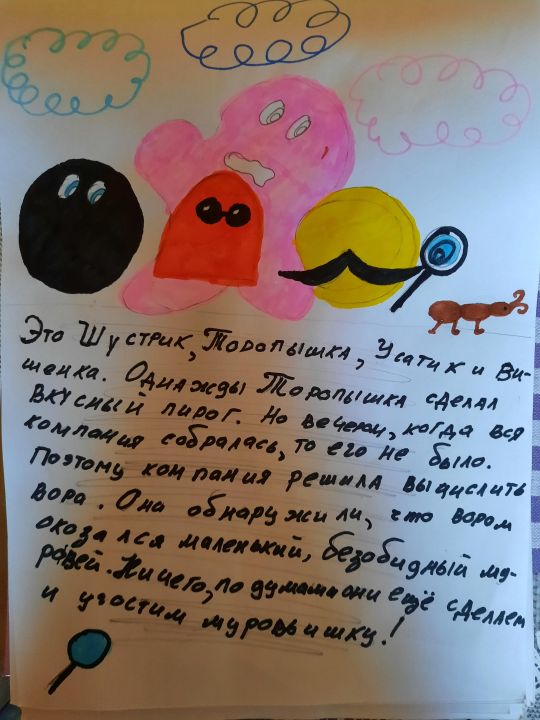 Это Шустрик, Торопышка, Усатик и Ви-
шенка. Однажды Торопышка сделал
вкусный пирог. Но вечером, когда вся
компания собралась, то его не было.
Поэтому компания решила вычислить
вора. Они обнаружили, что вором
оказался маленький, безобидный му-
равей. Ничего, подумали они ещё сделаем
и угостим муровьишку!